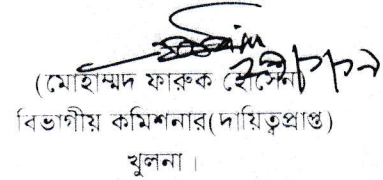 (মোহাম্মদ ফারুক হোসেন)
বিভাগীয় কমিশনার(দায়িত্বপ্রাপ্ত)
খুলনা।